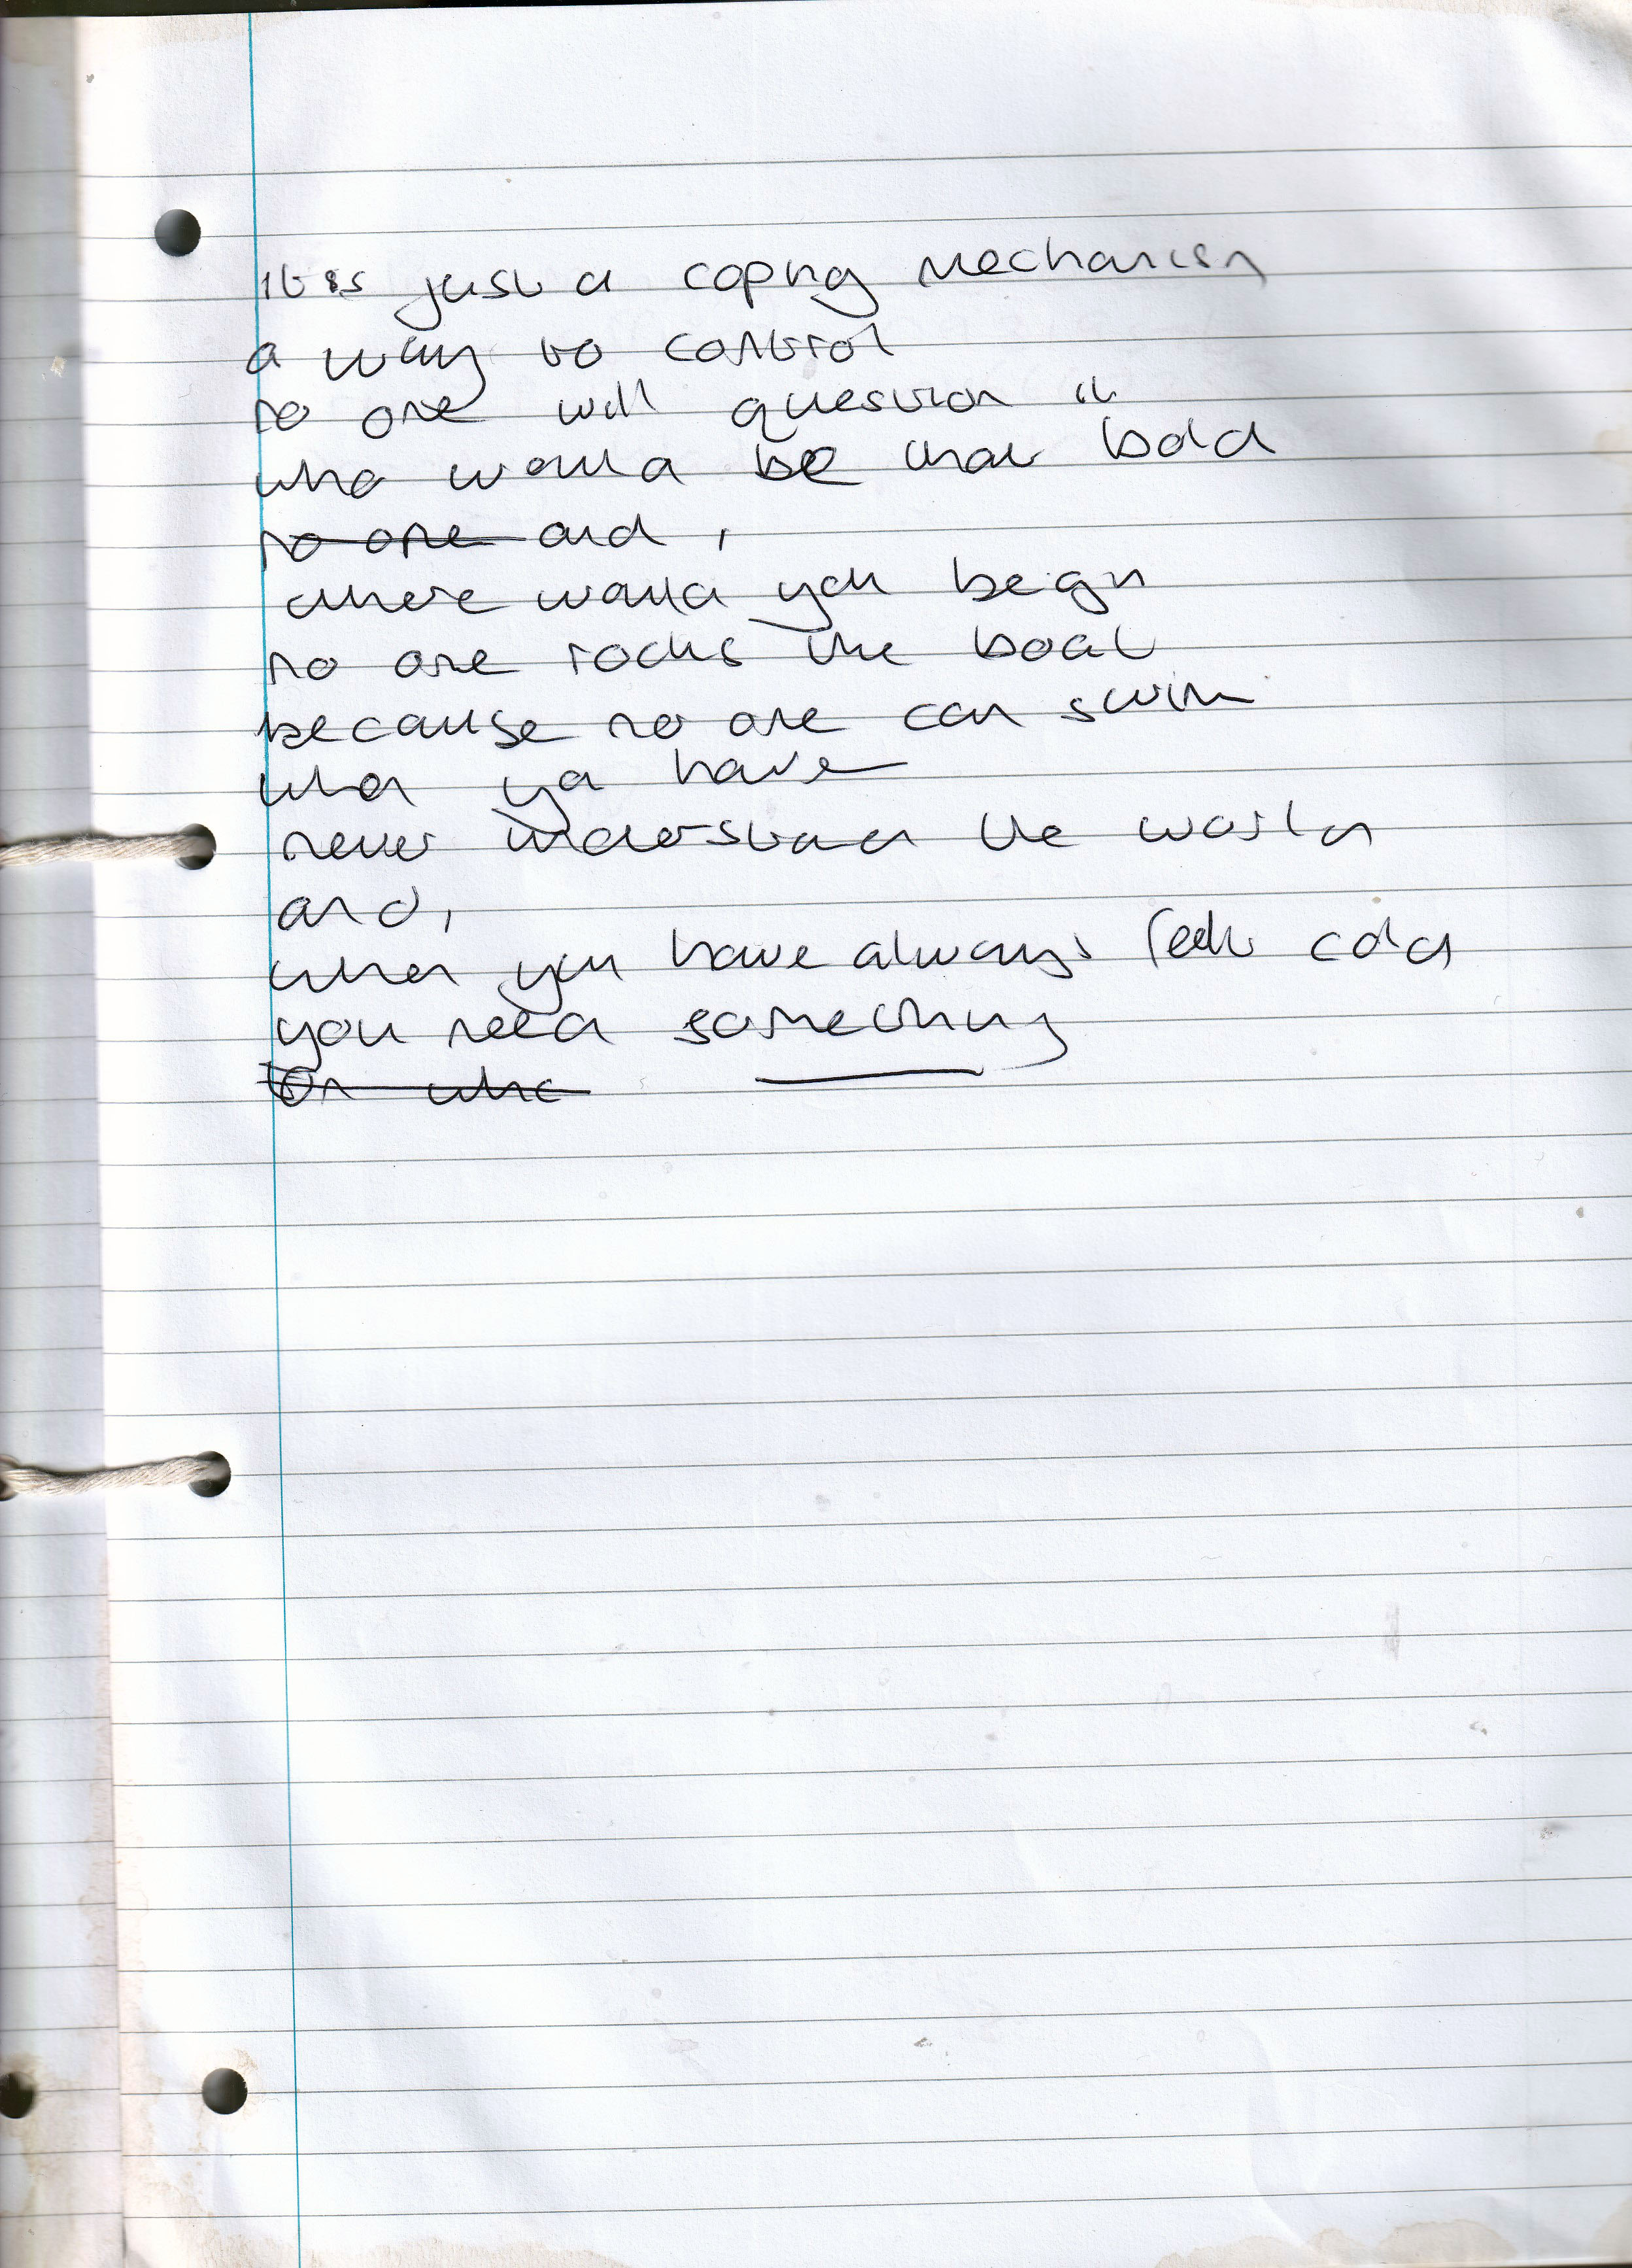 it is just a coping mechanism
a way to control
no one will question it
who would be that bold
no one and,
where would you begin
no one rocks the boat
because no one can swim
when you have
never understand the world
and,
when you have always feelt cold
you need something
Or whe